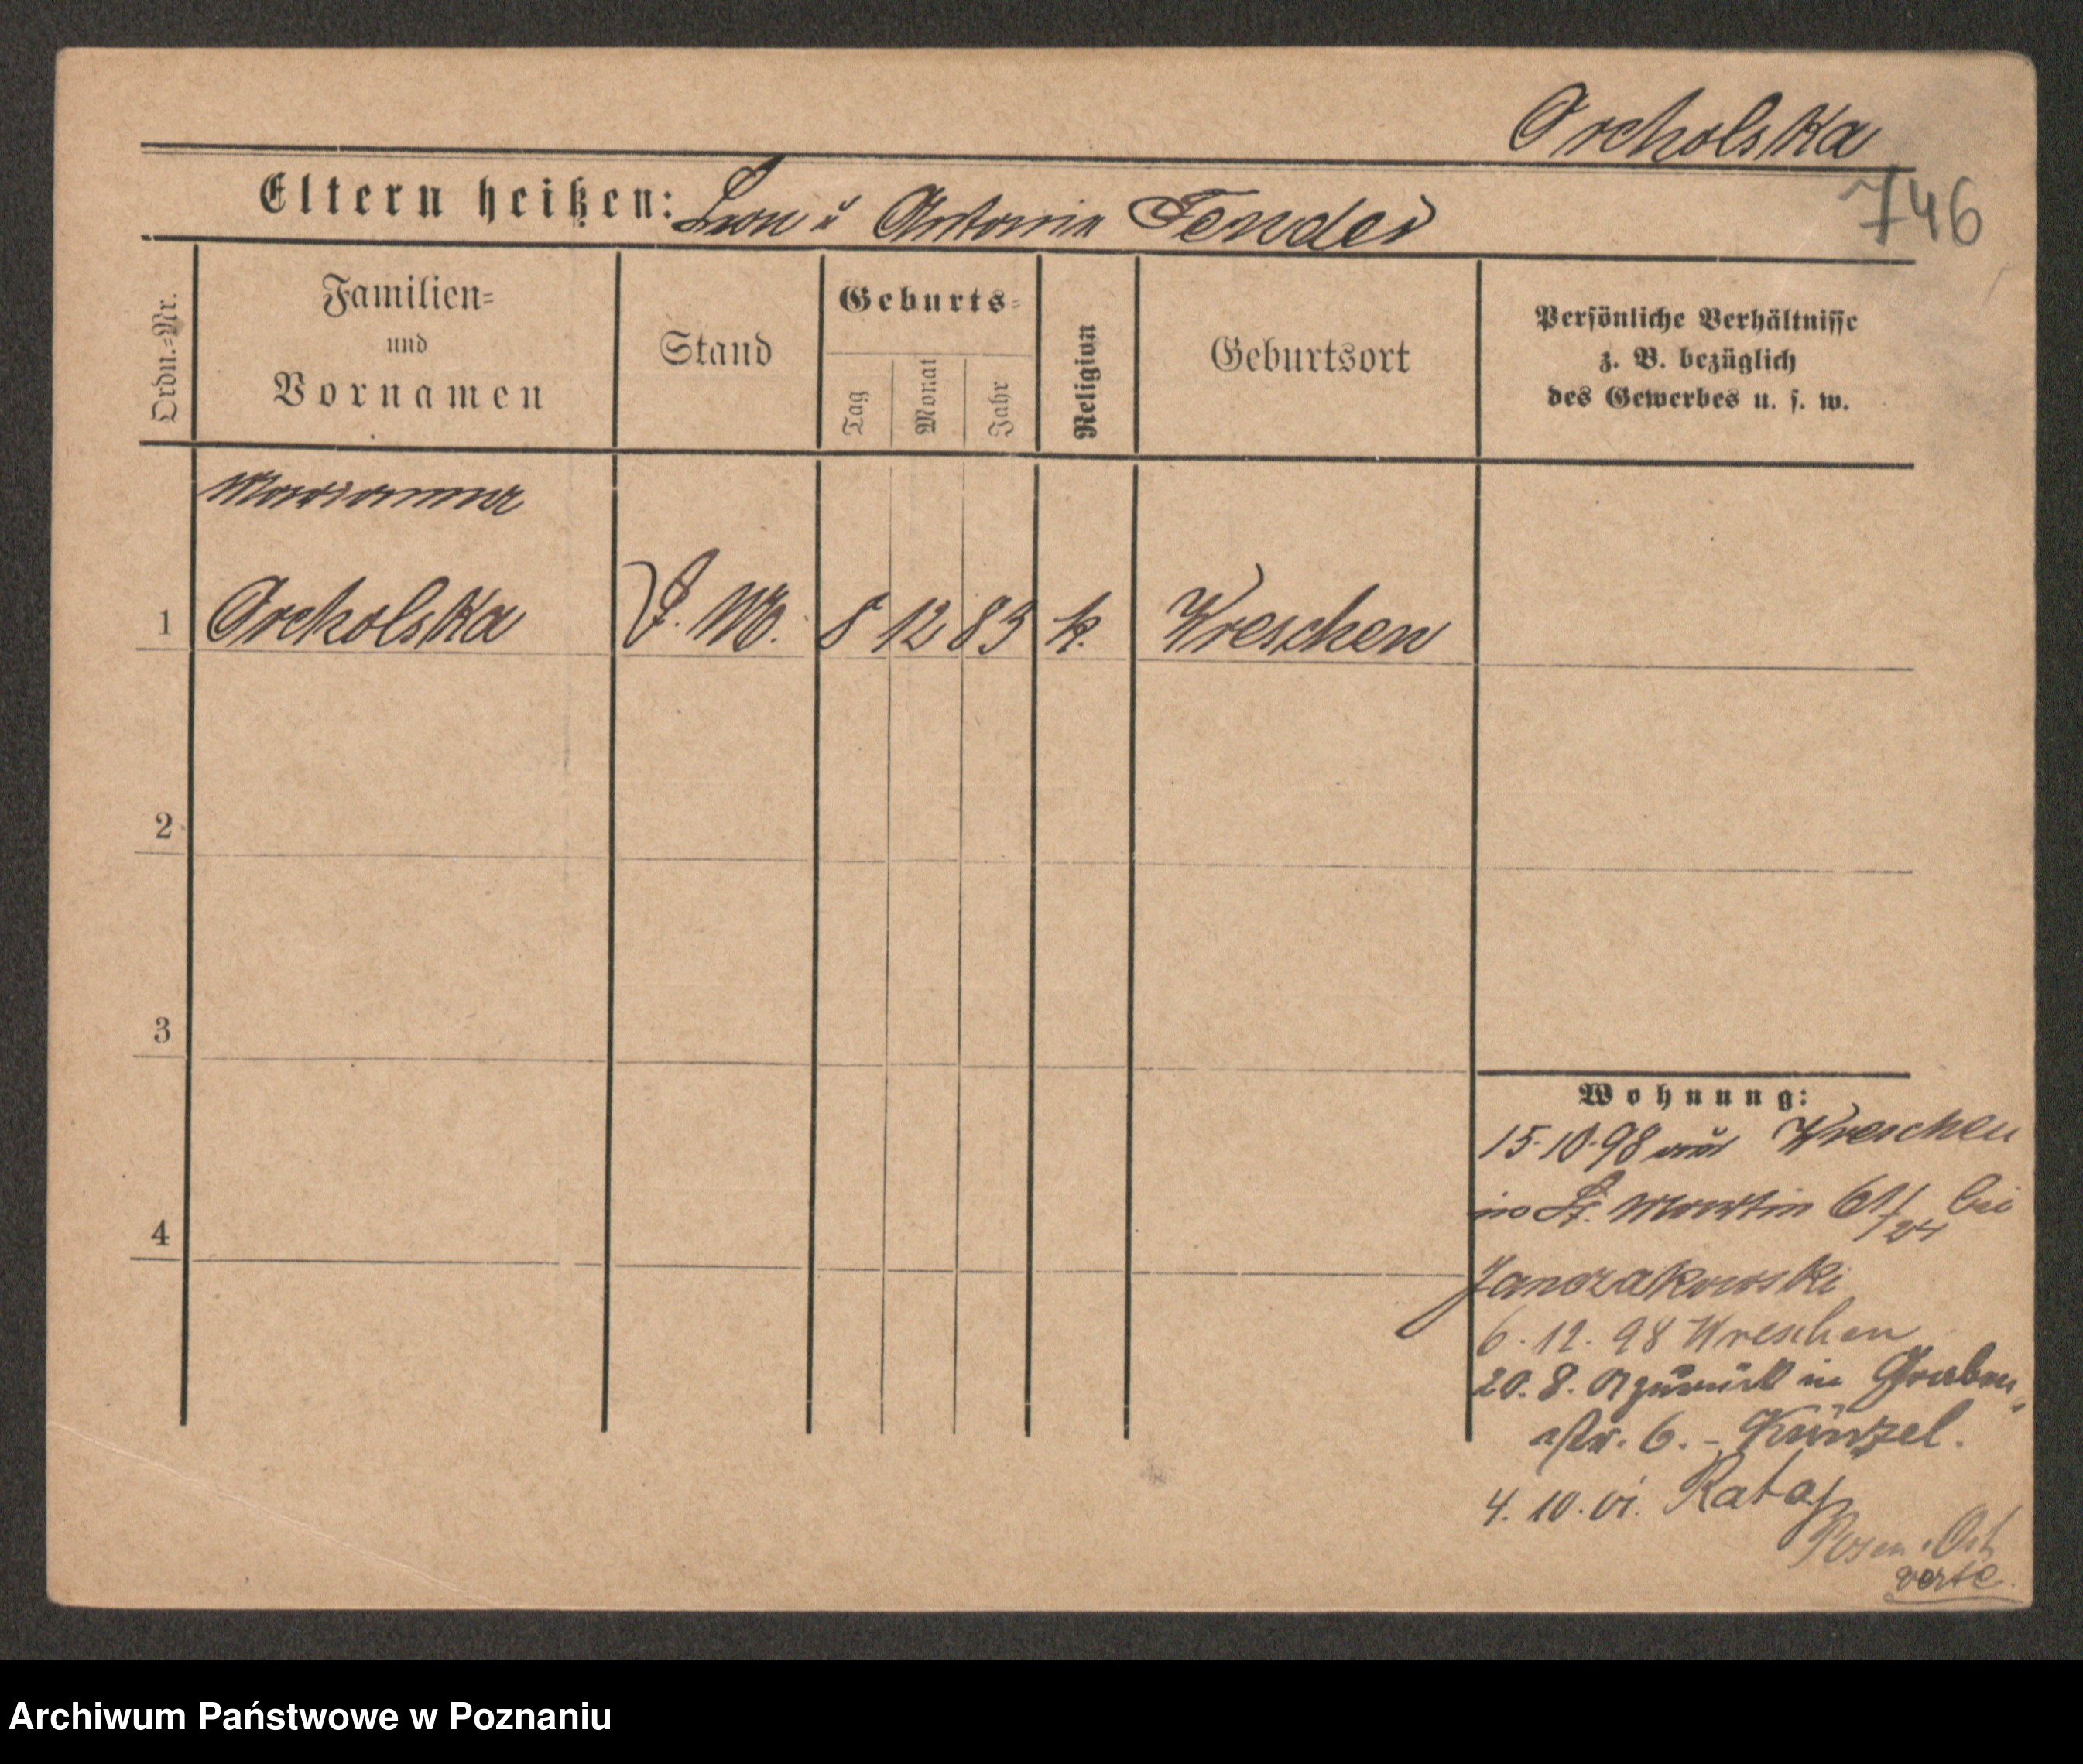 Orcholska
746
Eltern heißen: Leon u Antonia Fender
Ordn.=Nr.
Familien=
und
Vornamen
Stand
Geburts=
Tag
Monat
Jahr
Religion
Geburtsort
Persönliche Verhältnisse
z. B. bezüglich
des Gewerbes u. s. w.
Marianna
1 Orcholska D. M. 8 12 83 k. Wreschen
2
3
4
Wohnung:
15.10.98 aus Wreschen
in St. Martin 61/24 bei
Janczakowski
6.12.98 Wreschen
20.8.01 zurück in Graben
str. 6. - Künzel.
4.10.01. Rataj
Posen Ost
verte.
Archiwum Państwowe w Poznaniu